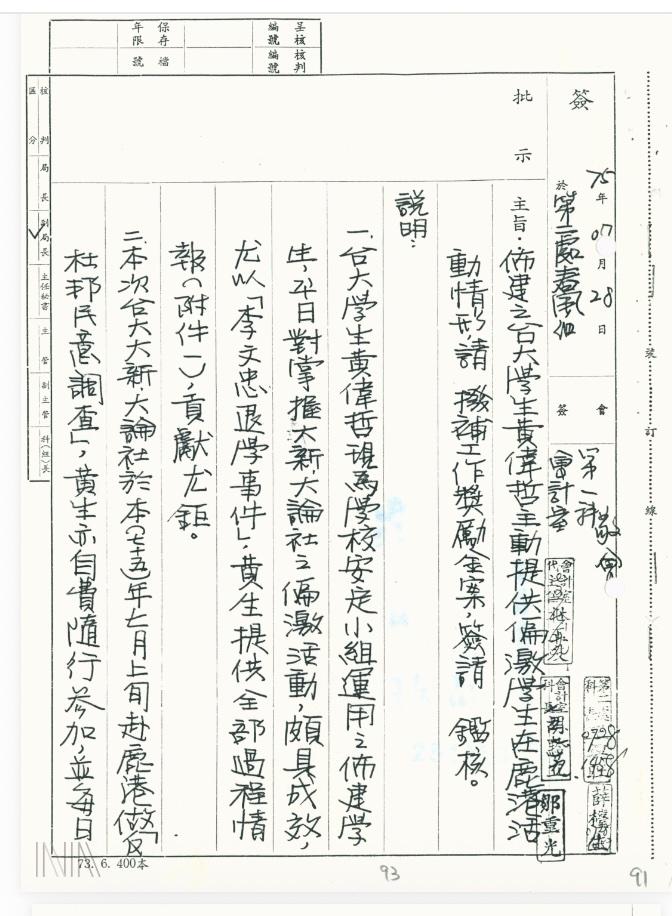 呈核
編號
核判
編號
保存
年限
檔號
簽
75年07月28日
於
第三處春風組
會
簽
第一科 敬會
會計室
會計室
薛
鄭重光
批示
主旨：佈建之台大學生黃偉哲主動提供偏激學生在鹿港活
動情形，請 撥補工作獎勵金案，簽請 鑑核。
說明：
一、台大學生黃偉哲現為學校安定小組運用之佈建學
生，平日對掌握大新、大論社之偏激活動，頗具成效，
尤以「李文忠退學事件」，黃生提供全部過程情
報（附件一），貢獻尤鉅。
二、本次台大大新、大論社於本（七十五）年七月上旬赴鹿港做「反
杜邦民意調查」，黃生亦自費隨行參加，並每日
核判區分
局長
副局長
主任秘書
主管
副主管
科（組）長
號
訂
線
73. 6. 400本
93
91